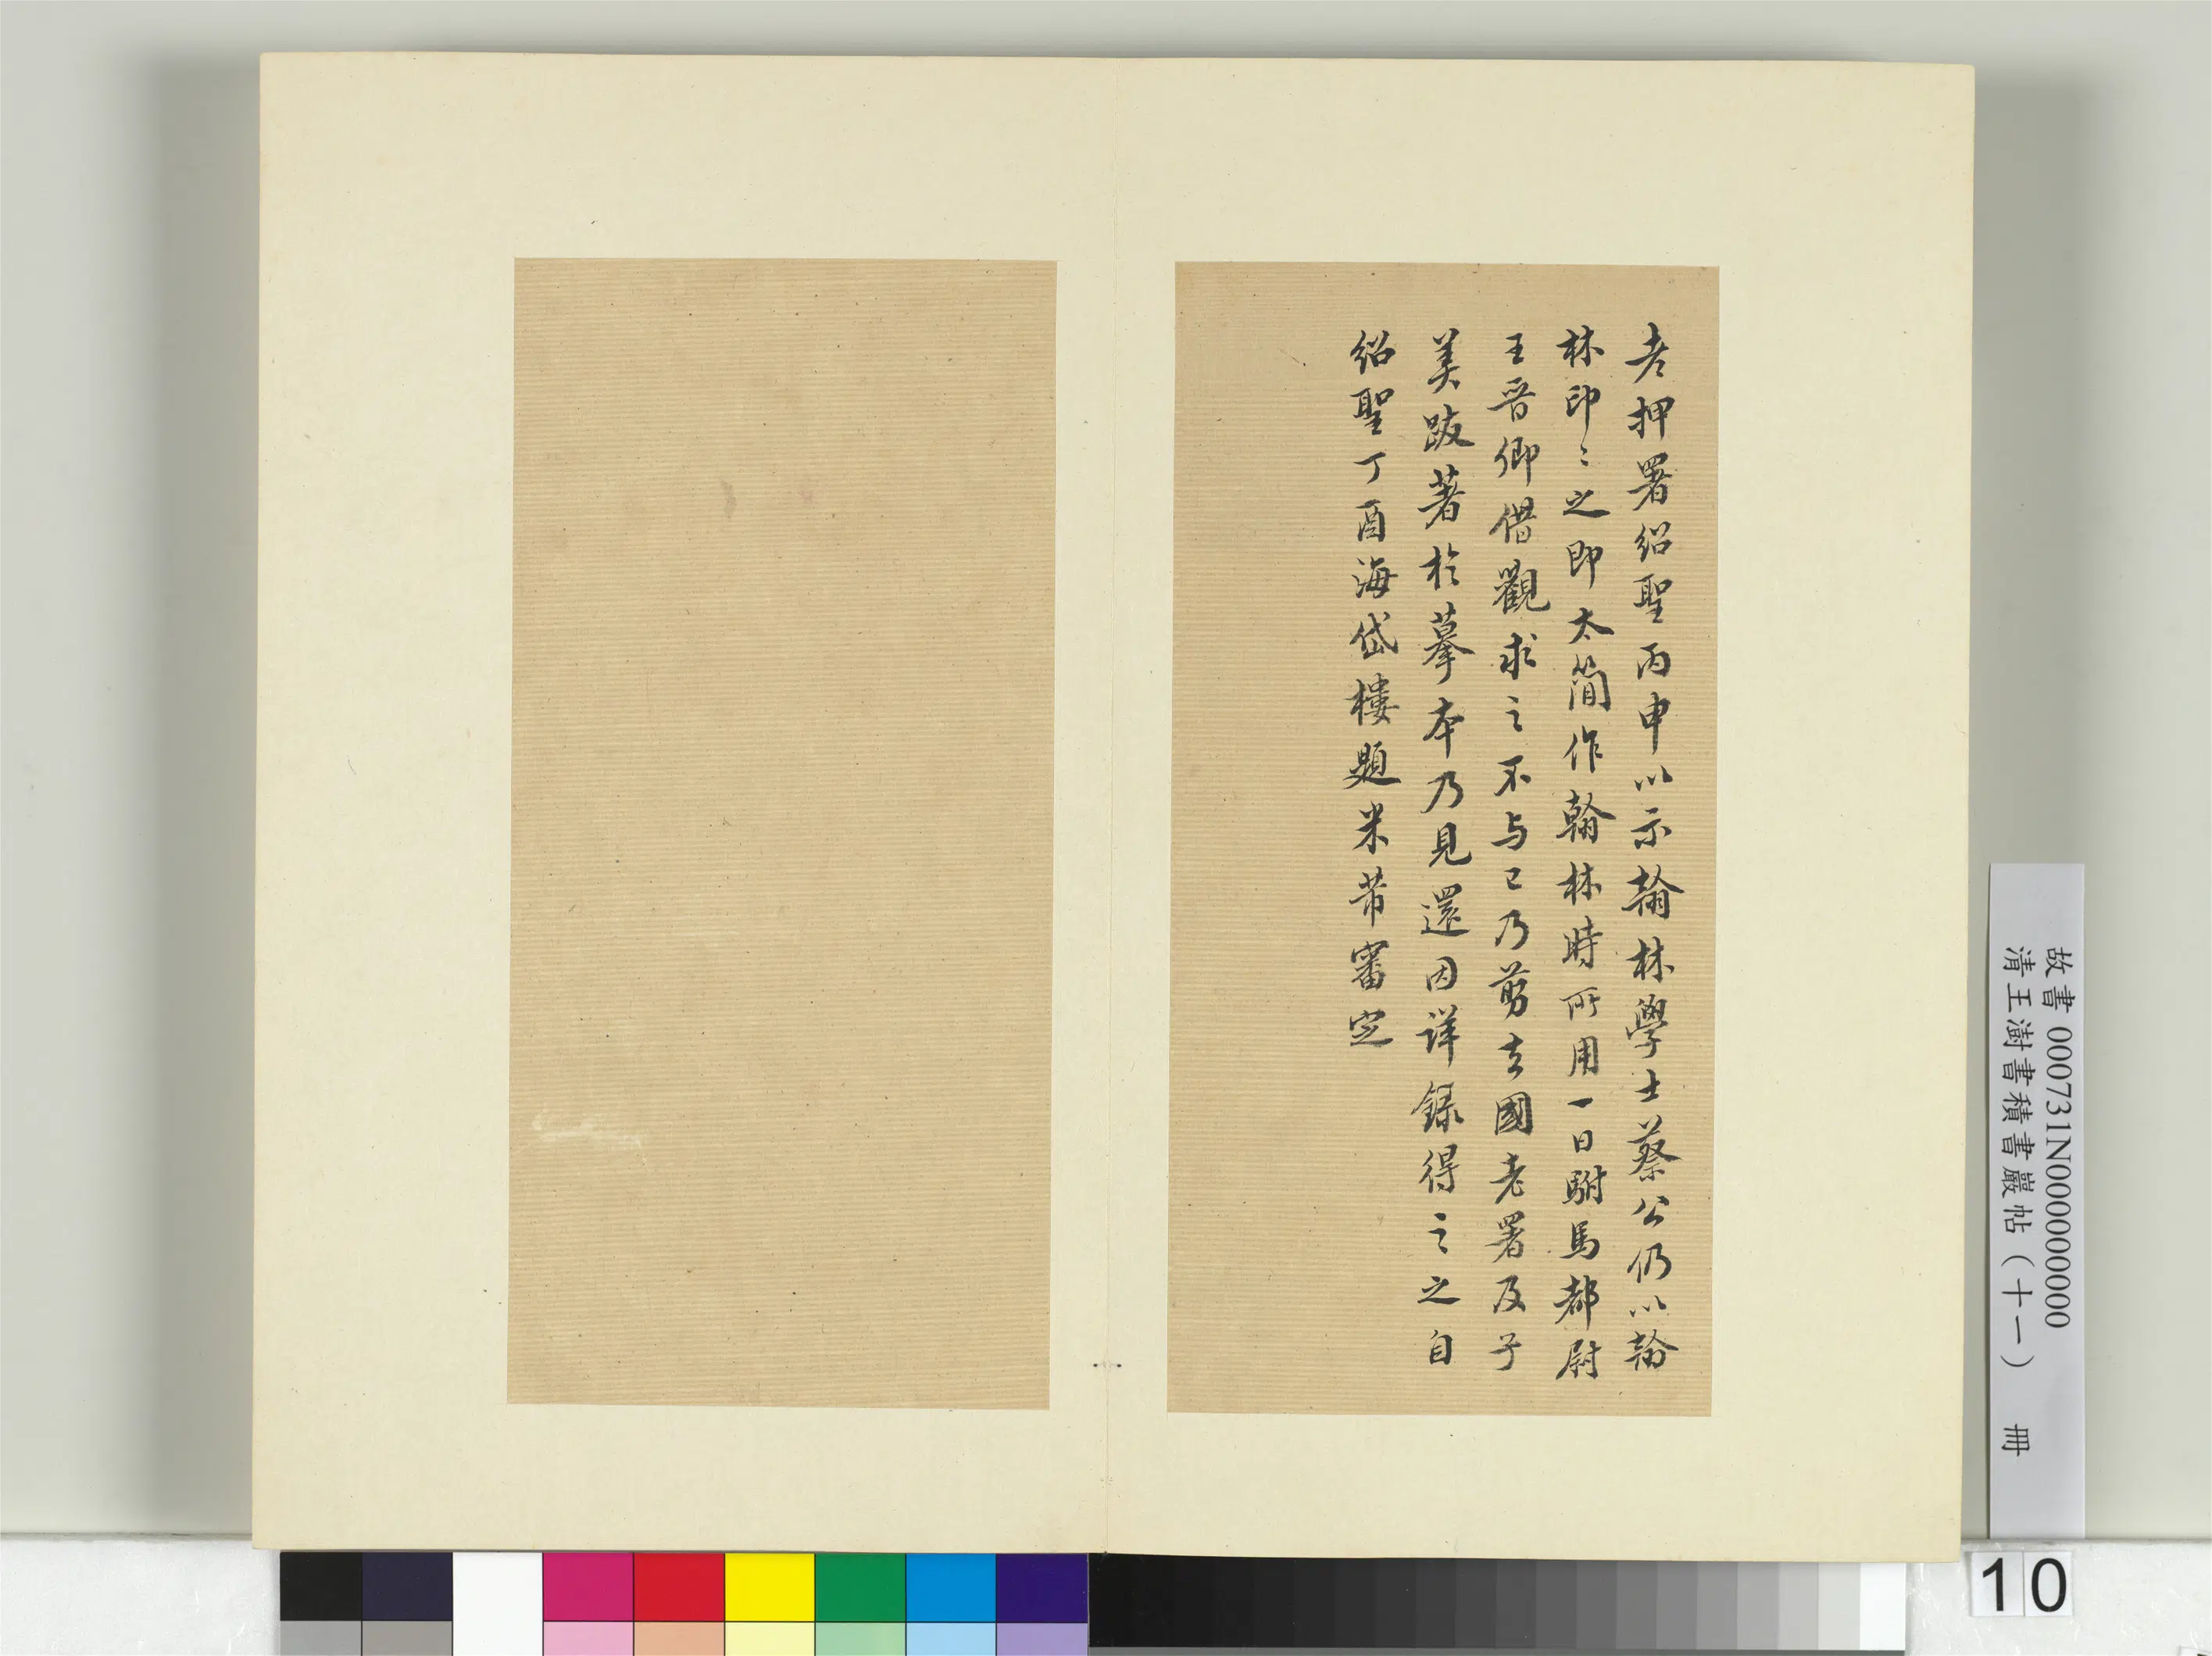 老押署紹聖丙申以示翰林學士蔡公仍以翰
林印〻之即太簡作翰林時所用一日駙馬都尉
王晉卿借觀求之不与已乃剪去國老署及子
美跋著於摹本乃見還因詳錄得之之自
紹聖丁酉海岱樓題米芾審定
故書000731N000000000
清王澍書積書巖帖（十一） 冊
10